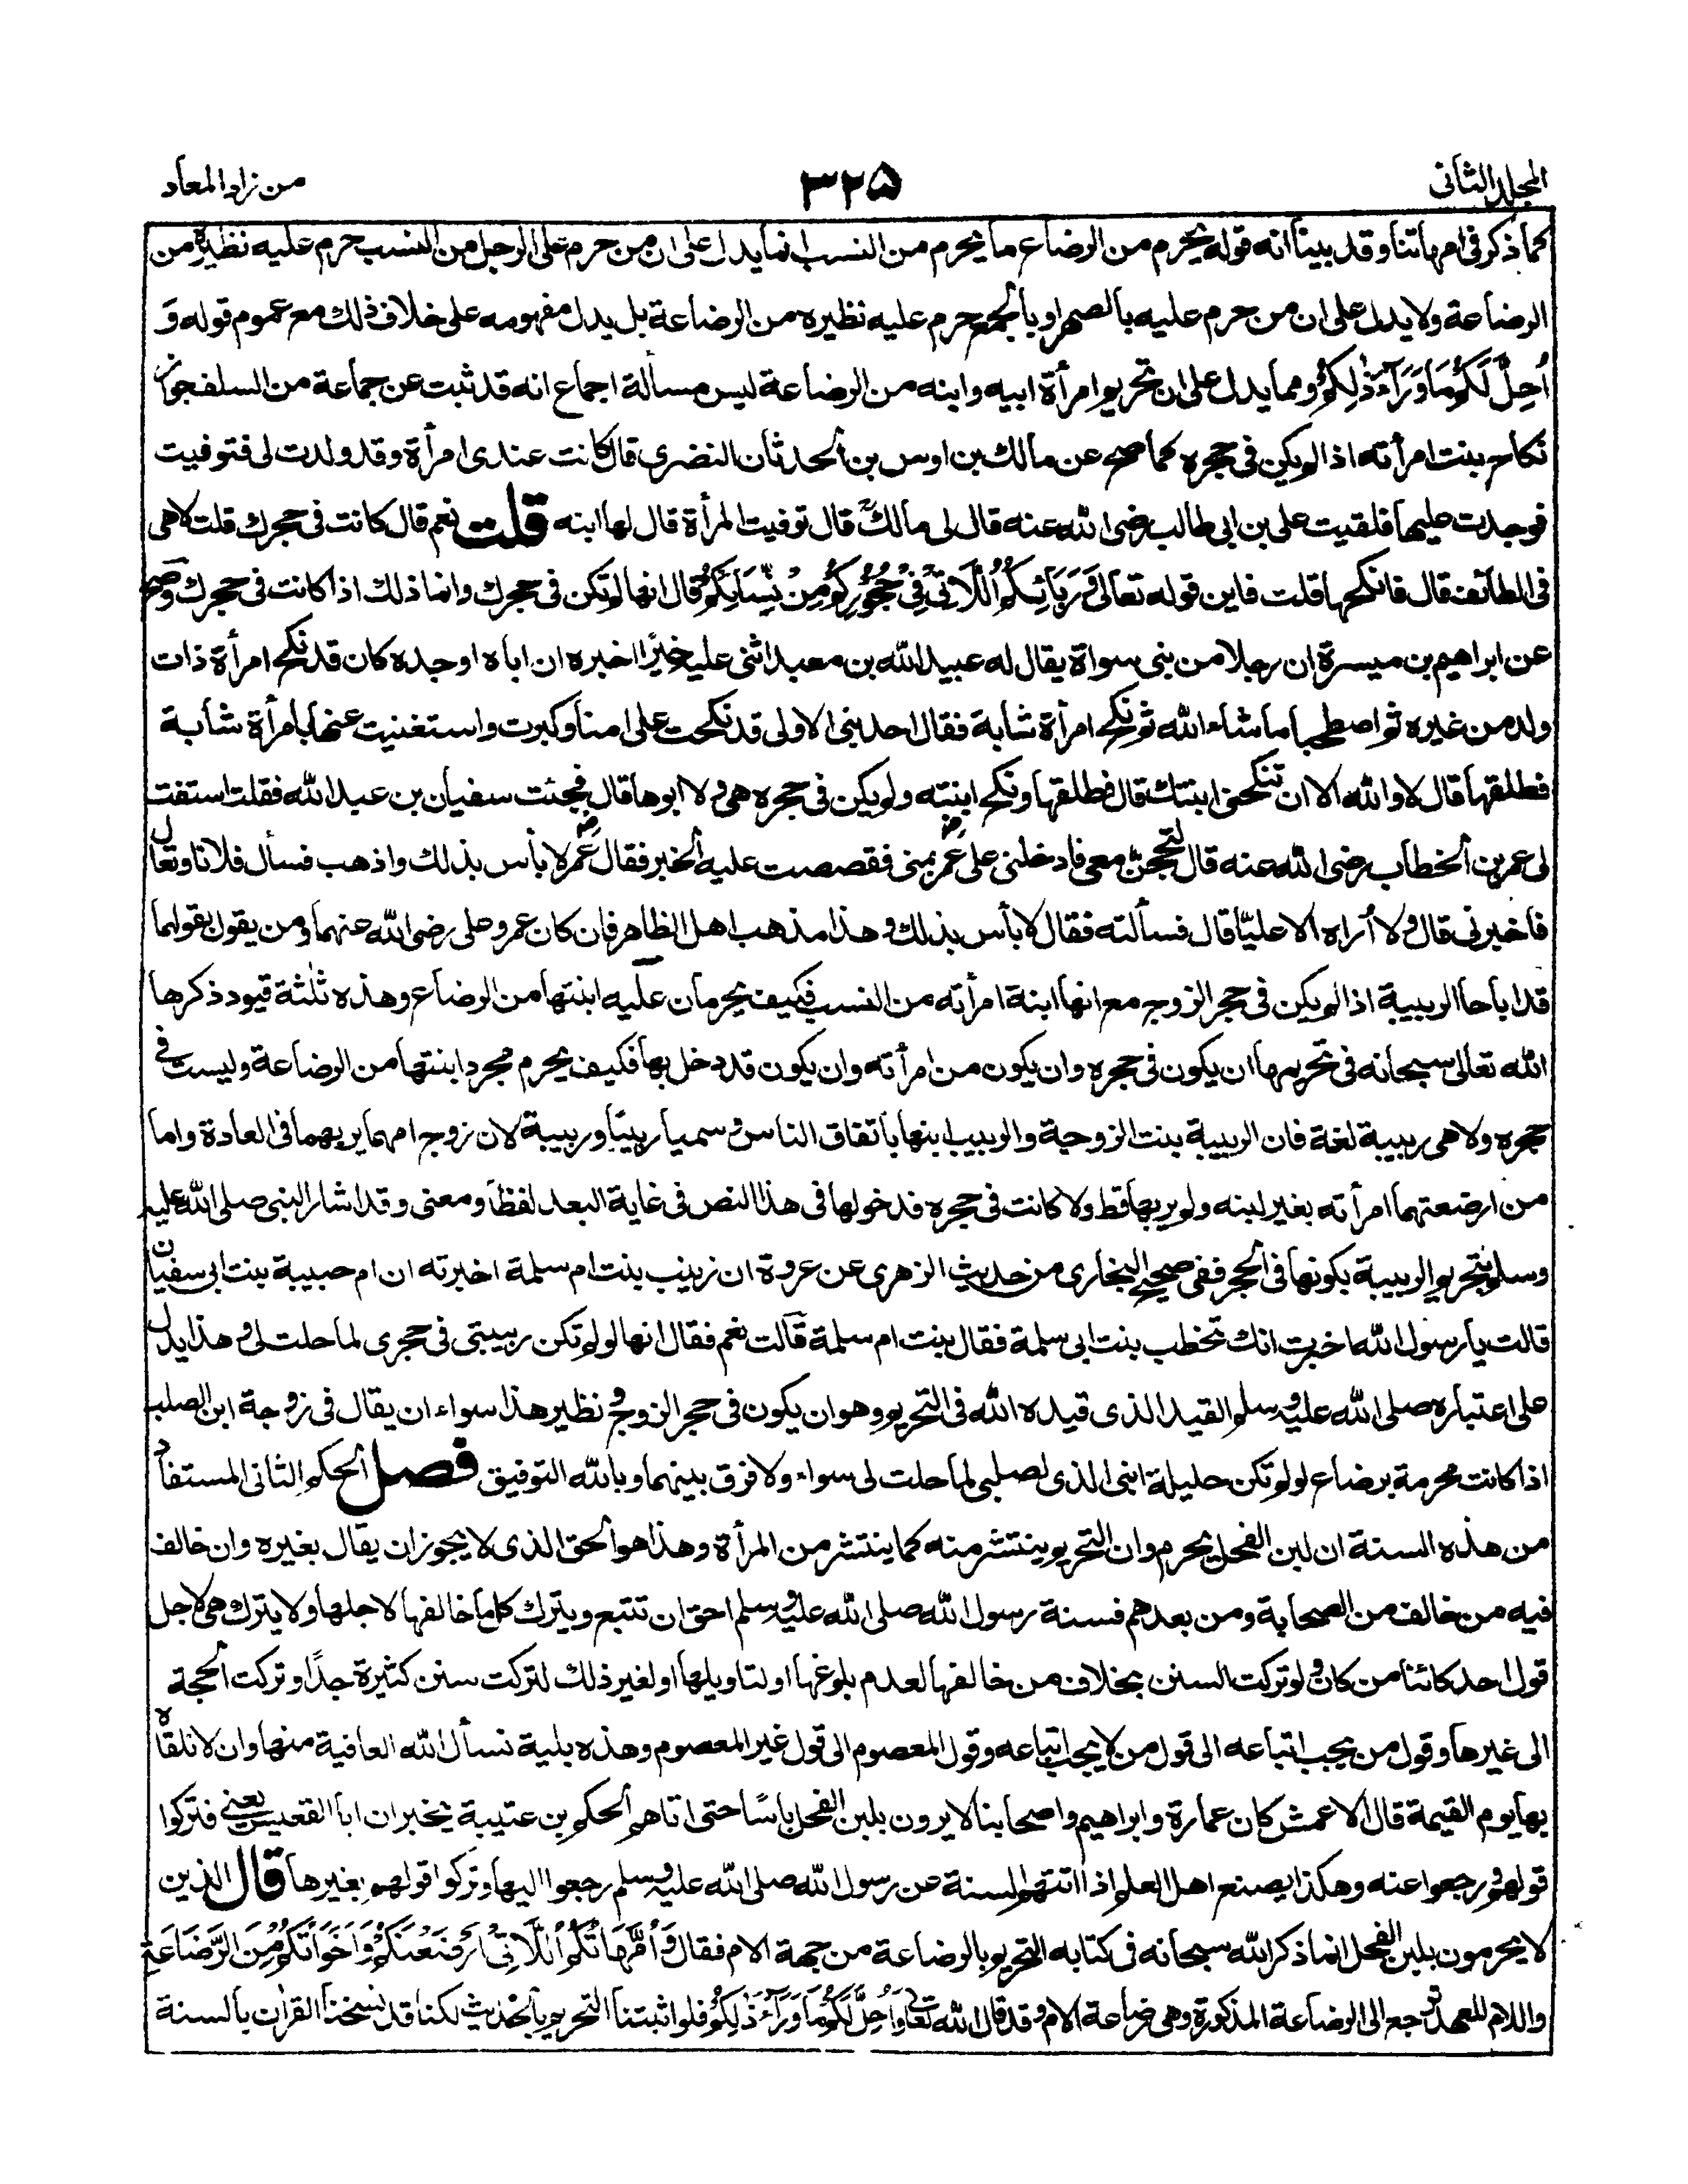 المجلد الثانى
٣٢٥
من زاد المعاد
كما ذكر فى امهاتنا وقد بينا انه قوله يحرم من الرضاع ما يحرم من النسب انما يدل على ان من حرم على الرجل من النسب حرم عليه نظيره من
الرضاعة ولا يدل على ان من حرم عليه بالصهر او بالجمع حرم عليه نظيره من الرضاعة بل يدل مفهومه على خلاف ذلك مع عموم قوله وَ
اُحِلَّ لَكُمْ مَا وَرَآءَ ذٰلِكُمْ ومما يدل على ان تحريم امرأة ابيه وابنه من الرضاعة ليس مسألة اجماع انه قد ثبت عن جماعة من السلف جواز
نكاح بنت امرأته اذا لم يكن فى حجره كما صح عن مالك بن اوس بن الحدثان النضرى قال كانت عندى امرأة وقد ولدت لى فتوفيت
فوجدت عليها فلقيت على بن ابى طالب رضى الله عنه قال لى مالك قال توفيت المرأة قال لها ابنه قلت نعم قال كانت فى حجرك قلت لا هى
فى الطائف قال فانكحها قلت فاين قوله تعالى وَرَبَائِبُكُمُ اللَّاتِىْ فِىْ حُجُوْرِكُمْ مِنْ نِّسَائِكُمْ قال انها لم تكن فى حجرك وانما ذلك اذا كانت فى حجرك وصح
عن ابراهيم بن ميسرة ان رجلا من بنى سواة يقال له عبيد الله بن معبد اثنى عليه خيرًا اخبره ان اباه او جده كان قد نكح امرأة ذات
ولد من غيره ثم اصطحبا ما شاء الله ثم نكح امرأة شابة فقال احد بنى الاولى قد نكحت على امنا وكبرت واستغنيت عنها بامرأة شابة
فطلقها قال لا والله الا ان تنكحنى ابنتك قال فطلقها ونكح ابنته ولم يكن فى حجره هى ولا ابوها قال فجئت سفيان بن عبد الله فقلت استفت
لى عمر بن الخطاب رضى الله عنه قال لتحجن معى فادخلنى على عمر بمنى فقصصت عليه الخبر فقال عمر لا بأس بذلك واذهب فسأل فلانا وتعال
فاخبرنى قال ولا أراه الا عليًّا قال فسألته فقال لا بأس بذلك وهذا مذهب اهل الظاهر فان كان عمر وعلى رضى الله عنهما ومن يقول بقولهما
قد اباحا الربيبة اذا لم يكن فى حجر الزوج مع انها ابنة امرأته من النسب فكيف يحرمان عليه ابنتها من الرضاع وهذه ثلثة قيود ذكرها
الله تعالى سبحانه فى تحريمها ان يكون فى حجره وان يكون من امرأته وان يكون قد دخل بها فكيف يحرم مجرد ابنتها من الرضاعة وليست فى
حجره ولا هى ربيبة لغة فان الربيبة بنت الزوجة والربيب ابنها باتفاق الناس وسميا ربيبًا وربيبة لان زوج امهما يربهما فى العادة واما
من ارضعتهما امرأته بغير لبنه ولم يربها قط ولا كانت فى حجره فدخولها فى هذا النص فى غاية البعد لفظًا ومعنى وقد اشار النبى صلى الله عليه
وسلم بتحريم الربيبة بكونها فى الحجر ففى صحيح البخارى من حديث الزهرى عن عروة ان زينب بنت ام سلمة اخبرته ان ام حبيبة بنت ابى سفيان
قالت يا رسول الله اخبرت انك تخطب بنت ابى سلمة فقال بنت ام سلمة قالت نعم فقال انها لو لم تكن ربيبتى فى حجرى لما حلت لى وهذا يدل
على اعتباره صلى الله عليه وسلم القيد الذى قيده الله فى التحريم وهو ان يكون فى حجر الزوج ونظير هذا سواء ان يقال فى زوجة ابن الصلب
اذا كانت محرمة برضاع لو لم تكن حليلة ابنى الذى لصلبى لما حلت لى سواء ولا فرق بينهما وبالله التوفيق فصل الحكم الثانى المستفاد
من هذه السنة ان لبن الفحل يحرم وان التحريم ينتشر منه كما ينتشر من المرأة وهذا هو الحق الذى لا يجوز ان يقال بغيره وان خالف
فيه من خالف من الصحابة ومن بعدهم فسنة رسول الله صلى الله عليه وسلم احق ان تتبع ويترك كلما خالفها لاجلها ولا يترك هى لاجل
قول احد كائنا من كان ولو تركت السنن بخلاف من خالفها لعدم بلوغها او لتاويلها او لغير ذلك لتركت سنن كثيرة جدًا وتركت الحجة
الى غيرها وقول من يجب اتباعه الى قول من لا يجب اتباعه وقول المعصوم الى قول غير المعصوم وهذه بلية نسأل الله العافية منها وان لا نلقاه
بها يوم القيمة قال الاعمش كان عمارة وابراهيم واصحابنا لا يرون بلبن الفحل باسًا حتى اتاهم الحكم بن عتيبة بخبر ان ابا القعيس يعنى فتركوا
قولهم ورجعوا عنه وهكذا يصنع اهل العلم اذا اتتهم السنة عن رسول الله صلى الله عليه وسلم رجعوا اليها وتركوا قولهم بغيرها قال الذين
لا يحرمون بلبن الفحل انما ذكر الله سبحانه فى كتابه التحريم بالرضاعة من جهة الام فقال وَاُمَّهَاتُكُمُ اللَّاتِىْ اَرْضَعْنَكُمْ وَاَخَوَاتُكُمْ مِنَ الرَّضَاعَةِ
واللام للعهد ترجع الى الرضاعة المذكورة وهى رضاعة الام وقد قال الله تعالى وَاُحِلَّ لَكُمْ مَا وَرَآءَ ذٰلِكُمْ فلو اثبتنا التحريم بالحديث لكنا قد نسخنا القران بالسنة